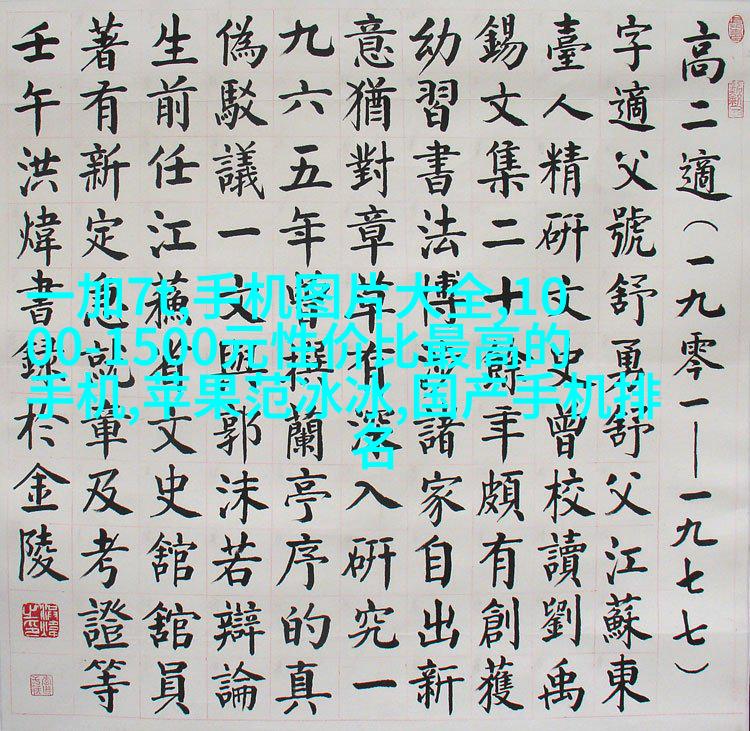 高二適(一九零一—一九七七)
字適父號舒勇舒父江蘇東
臺人精研文史曾校讀劉禹
錫文集二十餘年頗有創獲
幼習書法博諸家自出新
意猶對章草有深入研究一
九六五年曾撰蘭亭序的真
偽駁議一文與郭沫若辯論
生前任江蘇省文史舘舘員
著有新定急就章及考證等
壬午洪煒書錄於金陵
一加7t,手机图片大全,10
00-1500元性价比最高的
手机,苹果范冰冰,国产手机排
名